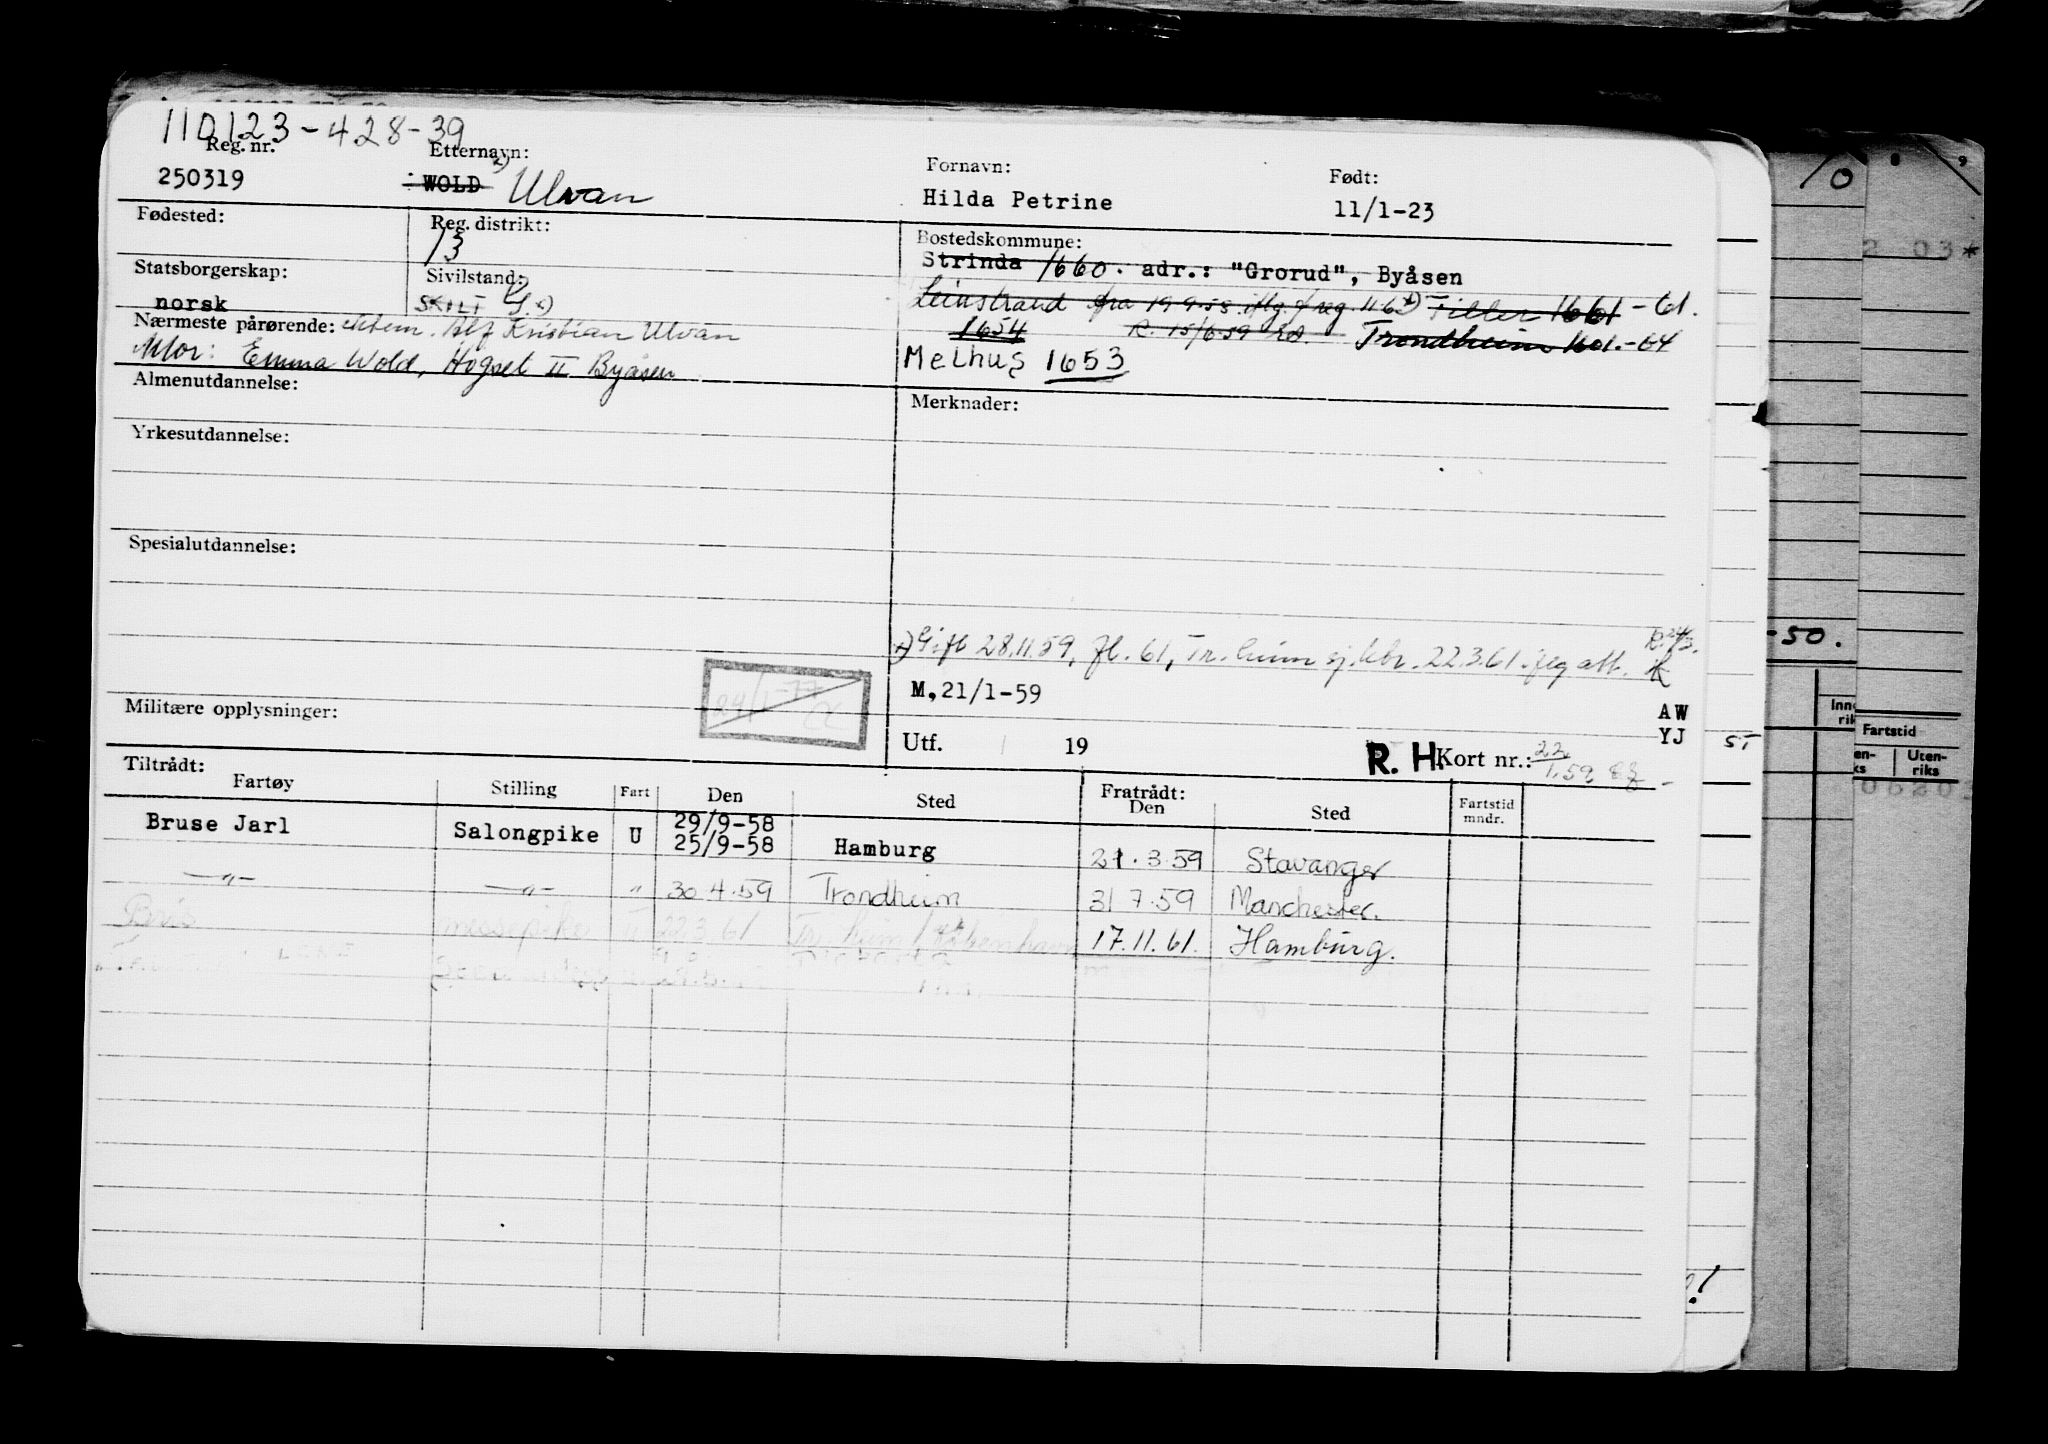 110123-428-39
Reg. nr. Etternavn: Fornavn: Født:
250319 WOLD x) Ulvan Hilda Petrine 11/1-23
Fødested: Reg. distrikt: Bostedskommune:
13 Strinda 1660. adr.: "Grorud", Byåsen
Statsborgerskap: Sivilstand:
norsk SKILT G. x) Leinstrand fra 19.9.58 iflg. reg. 11.6 x) Tiller 1661 - 61.
Nærmeste pårørende: ektem. Alf Kristian Ulvan 1654 R. 15/6.59 Trondheim 1601.-64
Mor: Emma Wold, Hogset II Byåsen Melhus 1653
Almenutdannelse: Merknader:
Yrkesutdannelse:
Spesialutdannelse:
x) Gift 28.11.59, fl. 61, Tr.heim sj.ktr. 22.3.61. att. R. 24/3.
24/1-77 M,21/1-59
Militære opplysninger: AW
Utf. 19 R. H. Kort nr.: 22/1.59 YJ
Tiltrådt: Fratrådt:
Fartøy Stilling Fart Den Sted Den Sted Fartstid mndr.
Bruse Jarl Salongpike U 29/9-58
25/9-58 Hamburg 21.3.59 Stavanger
—"— —"— " 30.4.59 Trondheim 31 7.59 Manchester.
Bris messepike U 22.3.61 Tr.heim/København 17.11.61. Hamburg.
10 8 9
2 03*
-50.
Inn-
rik
Fartstid
en- Uten-
ks riks